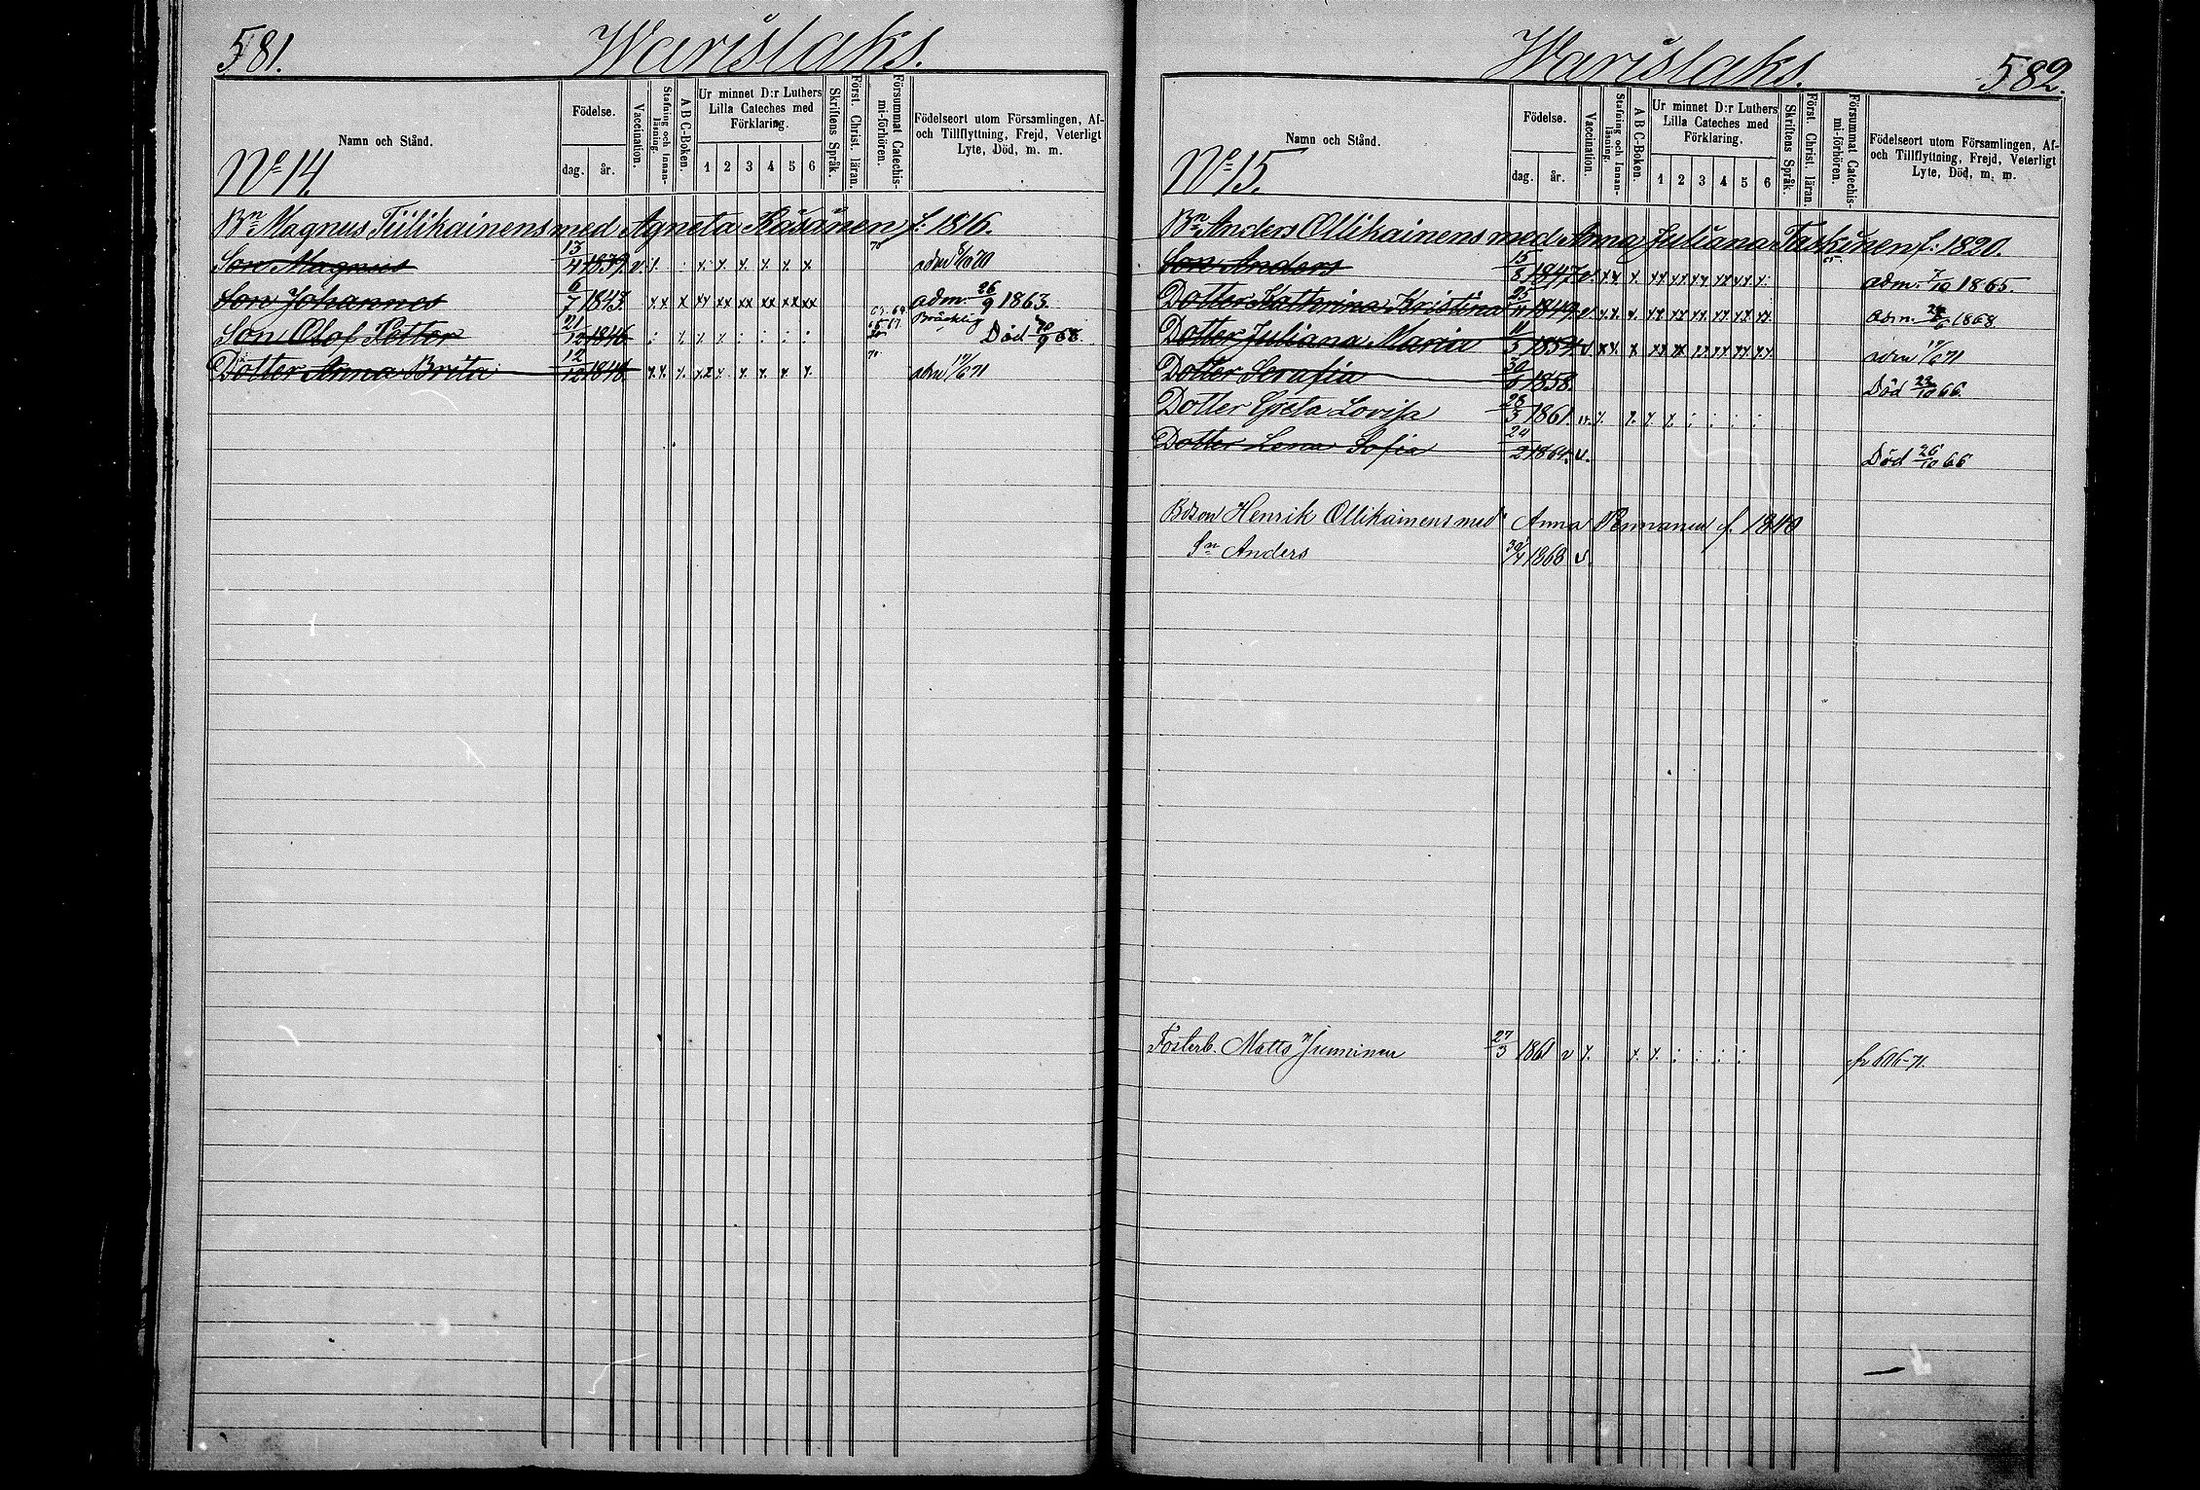 581. Warislaks.
Namn och Stånd.
Födelse.
dag. år.
Vaccination.
Stafning och Innan-läsning.
A B C-Boken.
Ur minnet D:r Luthers Lilla Cateches med Förklaring.
1 2 3 4 5 6
Skriftens Språk.
Först. Christ. läran.
Försummat Catechis-mi-förhören.
Födelseort utom Församlingen, Af- och Tillflyttning, Frejd, Veterligt Lyte, Död, m. m.
No 14.
Bn Magnus Tiilikainens med Agneta Räsänen f. 1816.
Son Magnus 13/4 1839 v. 70
Son Johannes 6/7 1843. adm. 26/9 1863.
Son Olof Petter 21/12 1846 Bräcklig Död 68.
Dotter Anna Brita 12/12 1848. 70 adm 71
Warislaks. 582.
Namn och Stånd.
Födelse.
dag. år.
Vaccination.
Stafning och Innan-läsning.
A B C-Boken.
Ur minnet D:r Luthers Lilla Cateches med Förklaring.
1 2 3 4 5 6
Skriftens Språk.
Först. Christ. läran.
Försummat Catechis-mi-förhören.
Födelseort utom Församlingen, Af- och Tillflyttning, Frejd, Veterligt Lyte, Död, m. m.
No 15.
Bn Anders Ollikainens med Anna Juliana Taskinen f: 1820.
Son Anders 15/8 1847 65. adm. 7/10 1865.
Dotter Katherina Kristina 1849 adm. 1868
Dotter Juliana Maria 11/5 1854 adm 71
Dotter Serafia 30/6 1858. Död 23/10 66.
Dotter Greta Lovisa 28/3 1861. v.
Dotter Lena Sofia 24/2 1864. v. Död 26/10 66
Bdson Henrik Ollikainens med Anna Pennanen f. 1840
Sn Anders 30/4 1868 v.
Fosterb. Matts Junninen 27/3 1861 v fr 606-71.